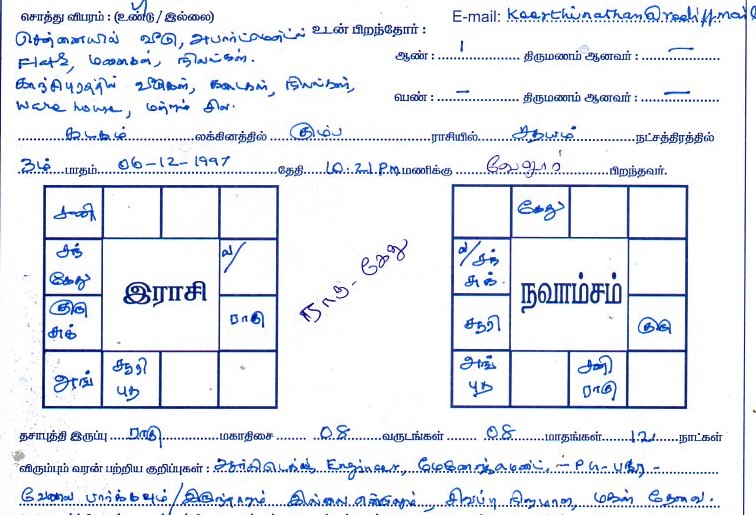 சொத்து விபரம் : (உண்டு / இல்லை)
E-mail: keerthinathan@rediffmail
சென்னையில் வீடு, அபார்ட்மெண்ட் உடன் பிறந்தோர் :
Flats, மனைகள், நிலங்கள்.
ஆண் : 1 திருமணம் ஆனவர் : —
காஞ்சிபுரத்தில் வீடுகள், கடைகள், நிலங்கள்,
பெண் : — திருமணம் ஆனவர் : —
ware house, மற்றும் சில.
கடகம் லக்கினத்தில் கும்ப ராசியில் சதயம் நட்சத்திரத்தில்
3ம் பாதம் 06-12-1997 தேதி 10.21 P.M மணிக்கு வேலூர் பிறந்தவர்.
சனி
சந் கேது
ல/
இராசி
குரு சுக்
ராகு
அங்
சூரி புத
ராகு - கேது
கேது
ல/ சந் சுக்
நவாம்சம்
சூரி
குரு
அங் புத
சனி ராகு
தசாபுத்தி இருப்பு ராகு மகாதிசை 08 வருடங்கள் 08 மாதங்கள் 12 நாட்கள்
விரும்பும் வரன் பற்றிய குறிப்புகள் : Engineer,
வேலை பார்க்கவும் / இல்லை சிவப்பு நிறமான, மகன் தேவை.